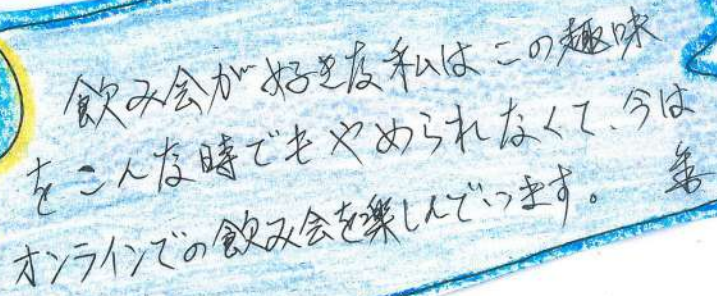 飲み会が好きな私はこの趣味
をこんな時でもやめられなくて、今は
オンラインでの飲み会を楽しんでいます。